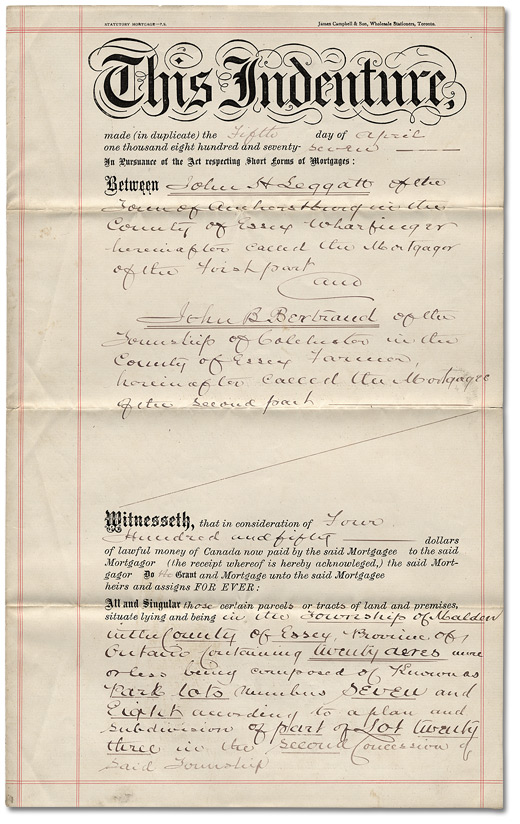 STATUTORY MORTGAGE—T.S.
James Campbell & Son, Wholesale Stationers, Toronto.
This Indenture,
made (in duplicate) the Fifth day of April
one thousand eight hundred and seventy-seven
In Pursuance of the Act respecting Short Forms of Mortgages:
Between John H Leggatt of the
Town of Amherstburg in the
County of Essex Wharfinger
hereinafter called the Mortgagor
of the First part
and
John B. Bertrand of the
Township of Colchester in the
County of Essex Farmer,
hereinafter called the Mortgagee
of the second part
Witnesseth, that in consideration of Four
Hundred and fifty dollars
of lawful money of Canada now paid by the said Mortgagee to the said
Mortgagor (the receipt whereof is hereby acknowleged,) the said Mort-
gagor Do th Grant and Mortgage unto the said Mortgagee
heirs and assigns FOR EVER:
All and Singular those certain parcels or tracts of land and premises,
situate lying and being in the Township of Malden
in the County of Essex, Province of
Ontario containing twenty acres more
or less being composed of Known as
Park lots numbers Seven and
Eight according to a plan and
subdivision of part of Lot twenty
three in the second Concession of
said Township